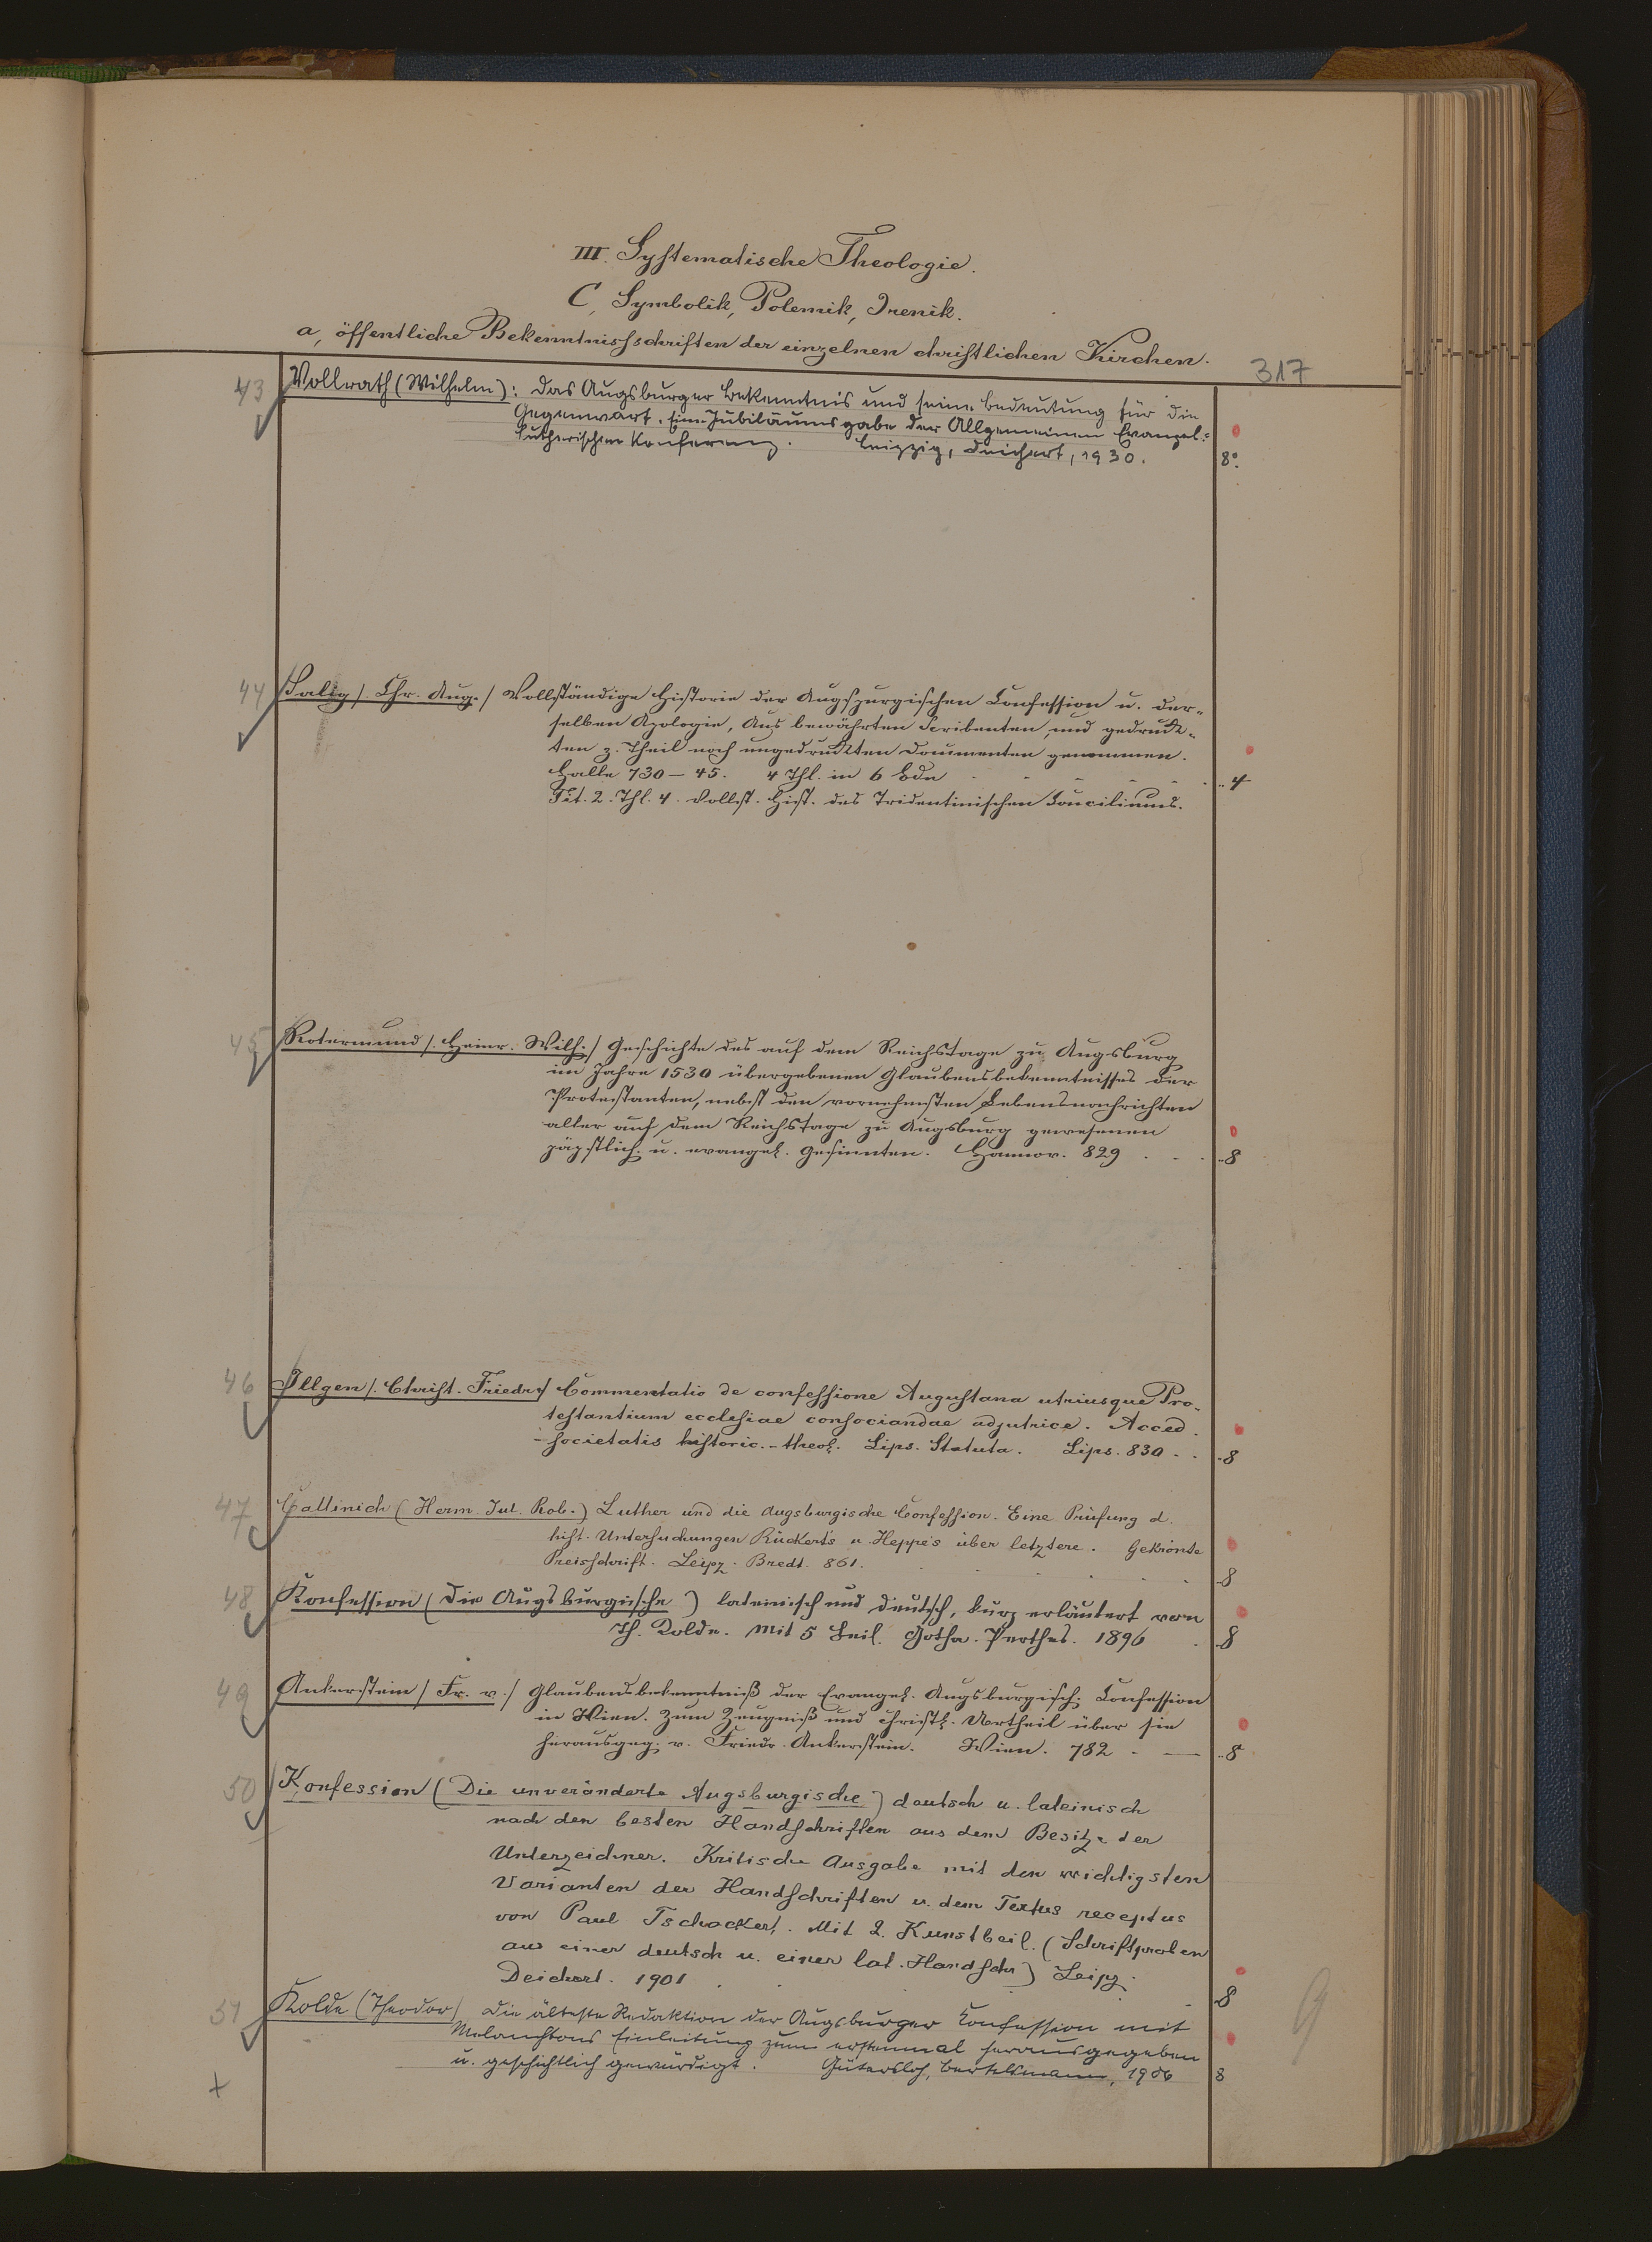 III. Systematische Theologie.
C, Symbolik, Polemik, Irenik.
a, öffentliche Bekenntnissschriften der einzelnen christlichen Kirchen.
317
43 Vollrath (Wilhelm): Das Augsburger Bekenntnis und seine Bedeutung für die
Gegenwart. Eine Jubiläumsgabe der Allgemeinen Evangel.=
Lutherischen Konferenz. Leipzig, Deichert, 1930. 8°.
44 Salig /. Chr. Aug. / Vollständige Historie der Augspurgischen Confession u. der=
selben Apologie, Aus bewährten Scribenten, und gedruck=
ten z. Theil noch ungedruckten Documenten genommen.
Halle 730–45. 4 Thl. in 6 Bdn . . . . . 4
Tit. 2. Thl. 4. Vollst. Hist. des Tridentinischen Conciliums.
45 Rotermund /. Heinr. Wilh. / Geschichte des auf dem Reichstage zu Augsburg
im Jahre 1530 übergebenen Glaubensbekenntnisses der
Protestanten, nebst den vornehmsten Lebensnachrichten
aller auf dem Reichstage zu Augsburg gewesenen
päpstlich. u. evangel. Gesinnten. Hannov. 829 . . . 8
46 Illgen /. Christ. Friedr. / Commentatio de confessione Augustana utriusque Pro-
testantium ecclesiae consociandae adjutrice. Acced.
societatis historic.-theol. Lips. Statuta. Lips. 830 . . 8
47 Callinich (Herm. Jul. Rob.) Luther und die Augsburgische Confession. Eine Prüfung d.
hist. Untersuchungen Rückert's u. Heppe's über letztere. Gekrönte
Preisschrift. Leipz. Bredt. 861. . . . . 8
48 Konfession (Die Augsburgische) lateinisch und deutsch, kurz erläutert von
Th. Kolde. Mit 5 Beil. Gotha. Perthes. 1896 . 8
49 Ankerstein / Fr. v. / Glaubensbekenntniß der Evangel. Augsburgisch. Confession
in Wien. Zum Zeugniß und christl. Urtheil über sie
herausgeg. v. Friedr. Ankerstein. Wien. 782 . — 8
50 Konfession (Die unveränderte Augsburgische) deutsch u. lateinisch
nach den besten Handschriften aus dem Besitze der
Unterzeichner. Kritische Ausgabe mit den wichtigsten
Varianten der Handschriften u. dem Textus receptus
von Paul Tschackert. Mit 2. Kunstbeil. (Schriftproben
aus einer deutsch u. einer lat. Handschr) Leipz.
Deichert. 1901 . . 8
51 Kolde (Theodor) Die älteste Redaktion der Augsburger Confession mit
Melanchtons Einleitung zum erstenmal herausgegeben
u. geschichtlich gewürdigt. Gütersloh, Bertelsmann, 1906 8
9